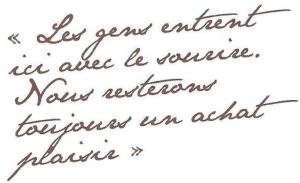 « Les gens entrent
ici avec le sourire.
Nous resterons
toujours un achat
plaisir »